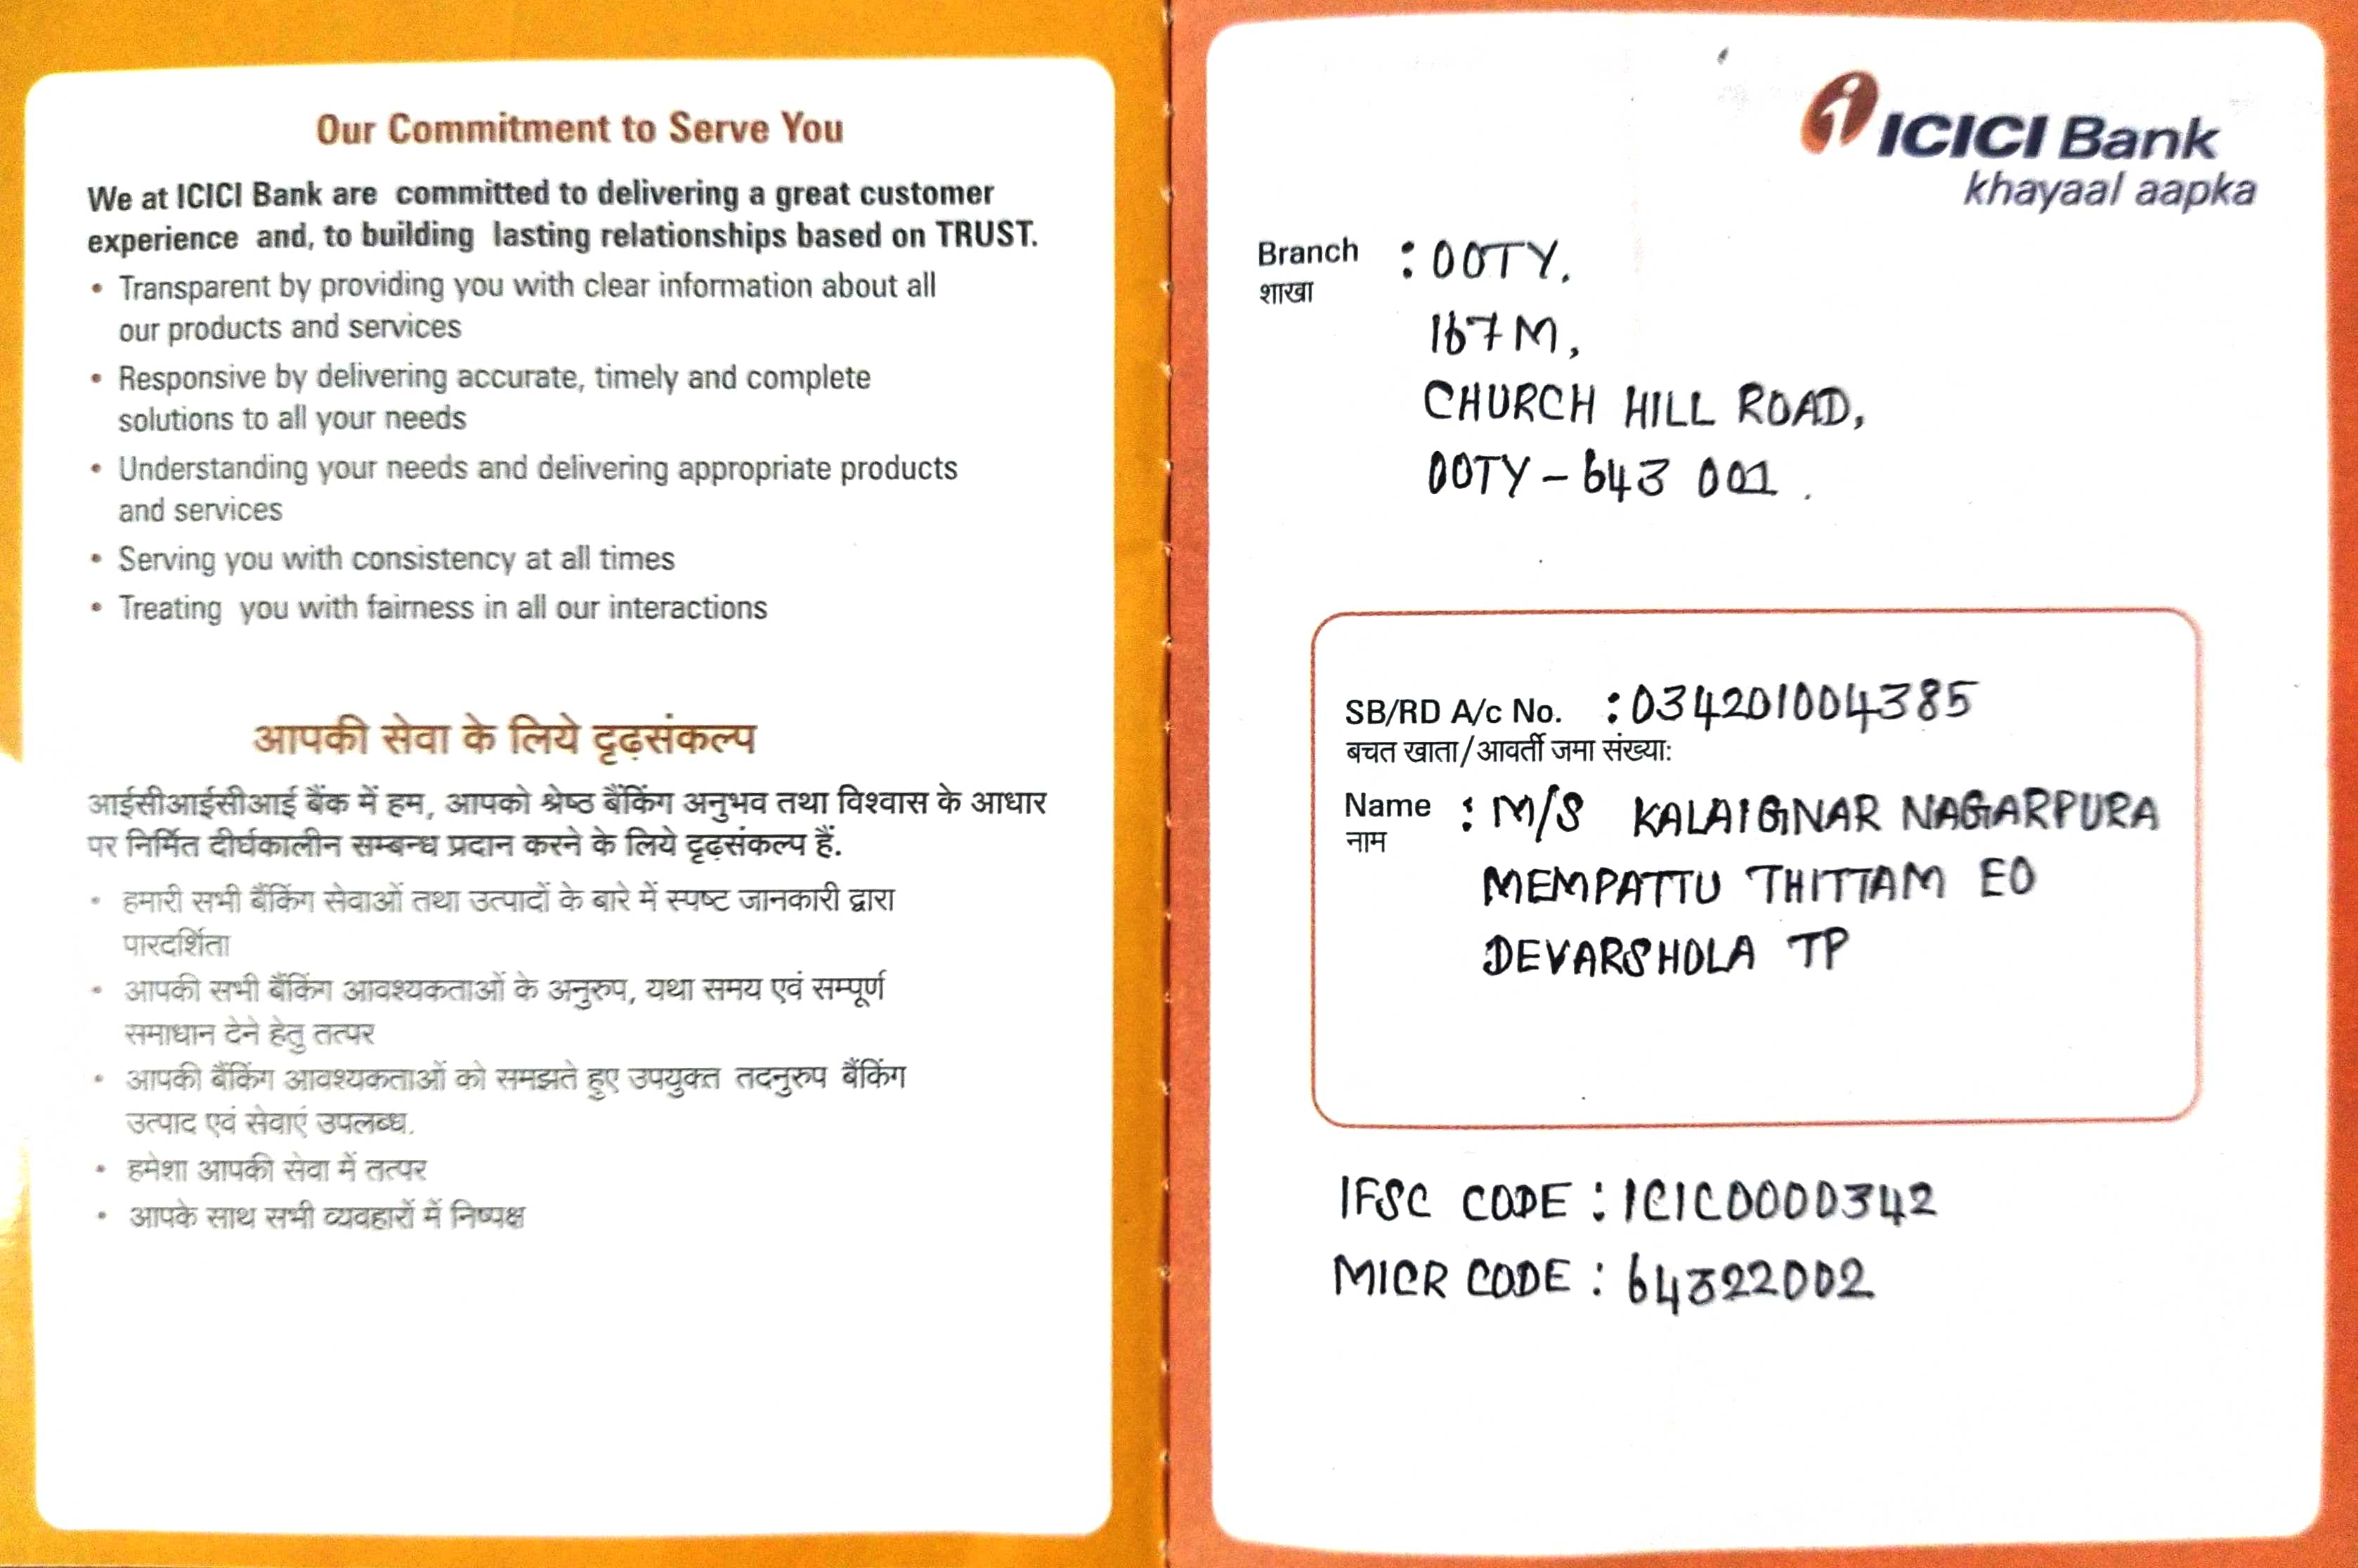 Our Commitment to Serve You
We at ICICI Bank are committed to delivering a great customer
experience and, to building lasting relationships based on TRUST.
• Transparent by providing you with clear information about all
our products and services
• Responsive by delivering accurate, timely and complete
solutions to all your needs
• Understanding your needs and delivering appropriate products
and services
• Serving you with consistency at all times
• Treating you with fairness in all our interactions
आपकी सेवा के लिये दृढ़संकल्प
आईसीआईसीआई बैंक में हम, आपको श्रेष्ठ बैंकिंग अनुभव तथा विश्वास के आधार
पर निर्मित दीर्घकालीन सम्बन्ध प्रदान करने के लिये दृढ़संकल्प हैं.
• हमारी सभी बैंकिंग सेवाओं तथा उत्पादों के बारे में स्पष्ट जानकारी द्वारा
पारदर्शिता
• आपकी सभी बैंकिंग आवश्यकताओं के अनुरुप, यथा समय एवं सम्पूर्ण
समाधान देने हेतु तत्पर
• आपकी बैंकिंग आवश्यकताओं को समझते हुए उपयुक्त तदनुरुप बैंकिंग
उत्पाद एवं सेवाएं उपलब्ध.
• हमेशा आपकी सेवा में तत्पर
• आपके साथ सभी व्यवहारों में निष्पक्ष
ICICI Bank
khayaal aapka
Branch : OOTY.
शाखा
167 M,
CHURCH HILL ROAD,
OOTY - 643 001.
SB/RD A/c No. : 034201004385
बचत खाता/आवर्ती जमा संख्या:
Name : M/S KALAIGNAR NAGARPURA
नाम
MEMPATTU THITTAM EO
DEVARSHOLA TP
IFSC CODE : ICIC0000342
MICR CODE : 64322002